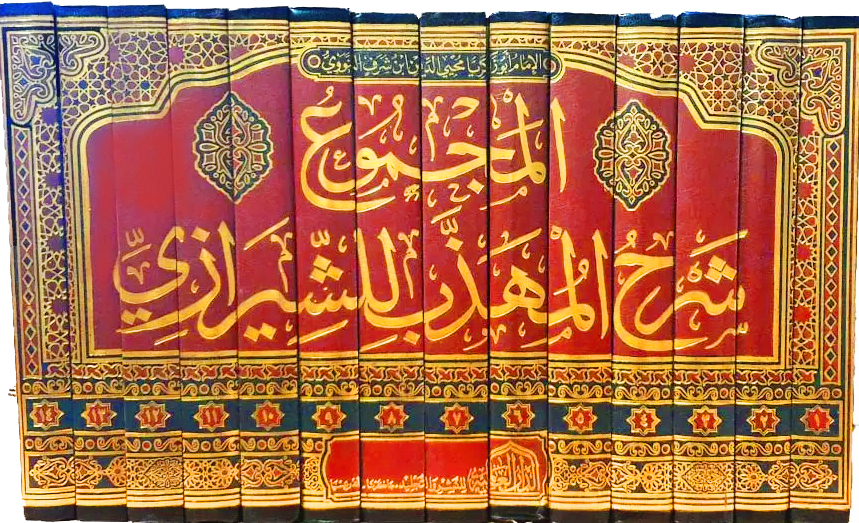 الإمام أبو زكريا محيي الدين بن شرف النووي
المجموع
شرح المهذب للشيرازي
١٤ ١٣ ١٢ ١١ ١٠ ٩ ٨ ٧ ٦ ٥ ٤ ٣ ٢ ١
الدار العالمية
للنشر والتجليد